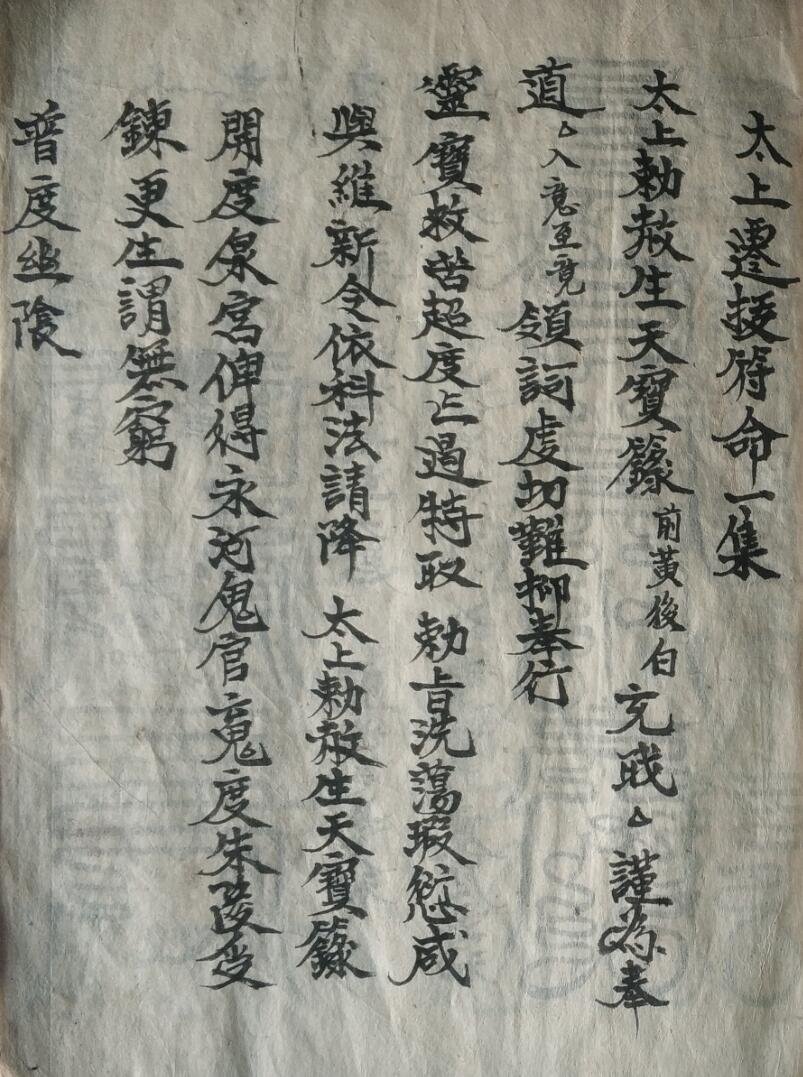 太上遷拔符命一集
太上勅赦生天寶籙 前黃後白 玄戝厶謹為奉
道厶入意至竟 領詞虔切難抑奉行
靈寶救苦超度亡過特取 勅旨洗蕩瑕愆咸
與維新令依科法請降 太上勅赦生天寶籙
開度泉宮俾得永河鬼官 㝵度朱陵受
鍊更生謂無窮
普度幽陰